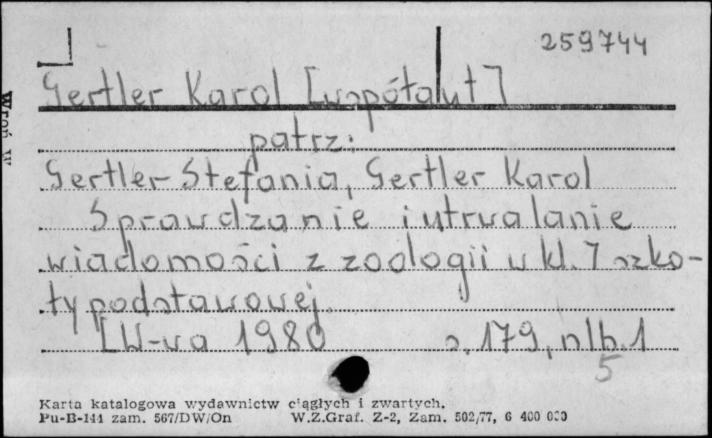 259744
Gertler Karol [współaut]
patrz:
Gertler Stefania, Gertler Karol
Sprawdzanie i utrwalanie
wiadomości z zoologii w kl. 7 szko-
ły podstawowej.
[W-wa 1980 s. 179, nlb. 1
5
Karta katalogowa wydawnictw ciągłych i zwartych.
Pu-B-144 zam. 567/DW/On W.Z.Graf. Z-2, Zam. 502/77, 6 400 000